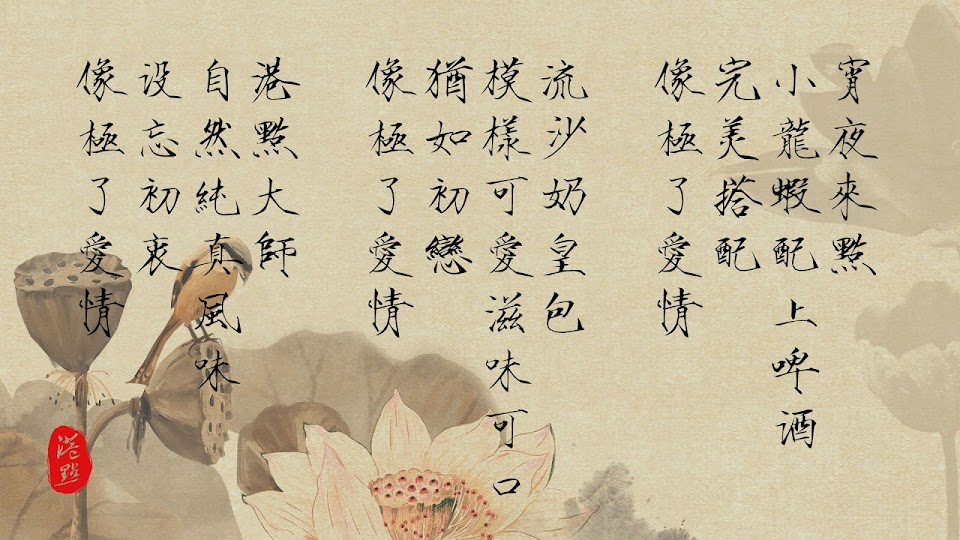 宵夜來點
小龍蝦配上啤酒
完美搭配
像極了愛情
流沙奶皇包
模樣可愛滋味可口
猶如初戀
像極了愛情
港點大師
自然純真風味
设忘初衷
像極了愛情
港點